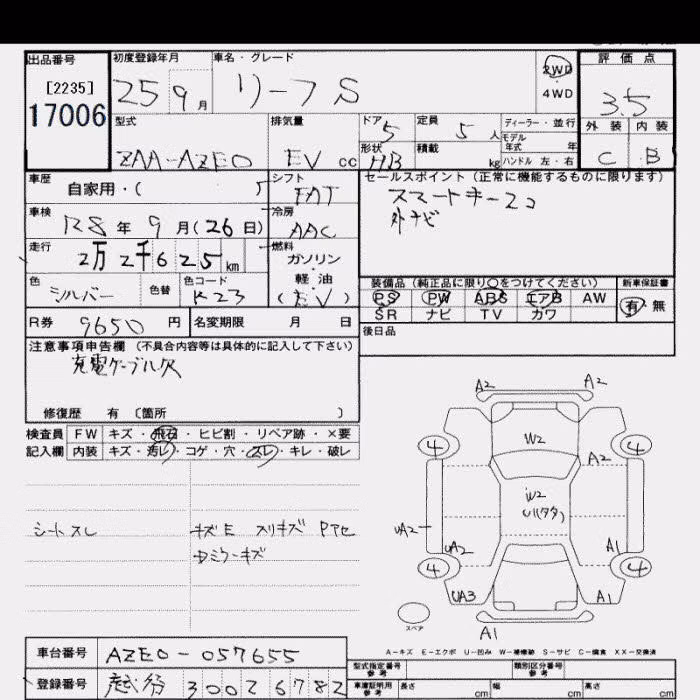 出品番号
[2235]
17006
初度登録年月
25 9 月
車名・グレード
リーフ S
2WD
4WD
評価点
3.5
外装 内装
C B
型式
ZAA-AZE0
排気量
EV cc
ドア 5
形状 HB
定員 5 人
積載 kg
ディーラー・並行
モデル年式 年
ハンドル 左・右
車歴
自家用・(
シフト
FAT
セールスポイント (正常に機能するものに限ります)
スマートキー2コ
外ナビ
車検
R8 年 9 月 (26 日)
冷房
AAC
走行
2万2千625 km
燃料
ガソリン・
軽油
(EV)
色
シルバー
色替
色コード
K23
装備品 (純正品に限り○をつけてください)
PS PW ABS エアB AW
SR ナビ TV カワ
新車保証書
有・無
R券 9650 円
名変期限 月 日
後日品
注意事項申告欄 (不具合内容等は具体的に記入して下さい)
充電ケーブル欠
修復歴 有 〔箇所 〕
検査員
記入欄
FW キズ・飛石・ヒビ割・リペア跡・×要
内装 キズ・汚レ・コゲ・穴・スレ・キレ・破レ
シートスレ
キズE スリキズ Pアセ
ミラーキズ
A2 A2
4 W2 4
A2
W2
U1(タタ)
UA2
UA2 A1
4 4
UA3 A1
スペア
A1
A-キズ E-エクボ U-凹み W-補修跡 S-サビ C-腐食 XX-交換済
車台番号 AZE0-057655
登録番号 300 2 6782
型式指定番号
参考
類別区分番号
参考
車庫証明用
参考
長さ cm 幅 cm 高さ cm